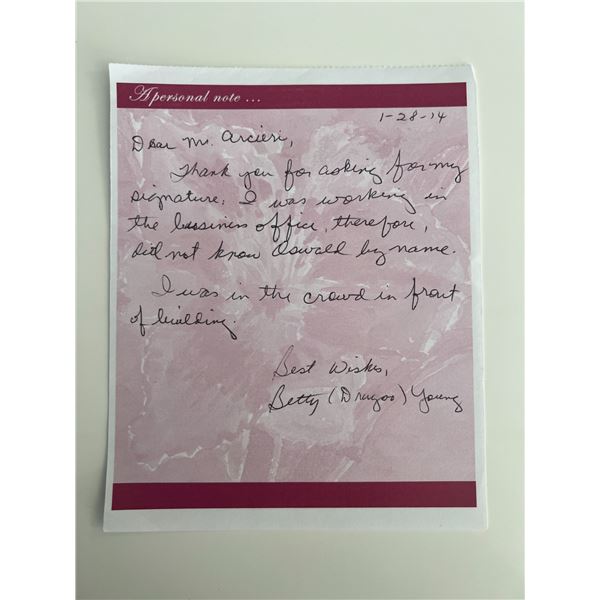 A personal note ...
1-28-14
Dear Mr. Arcieri,
Thank you for asking for my
signature. I was working in
the bussiness office, therefore,
did not know Oswald by name.
I was in the crowd in front
of building.
Best Wishes,
Betty (Dragoo) Young